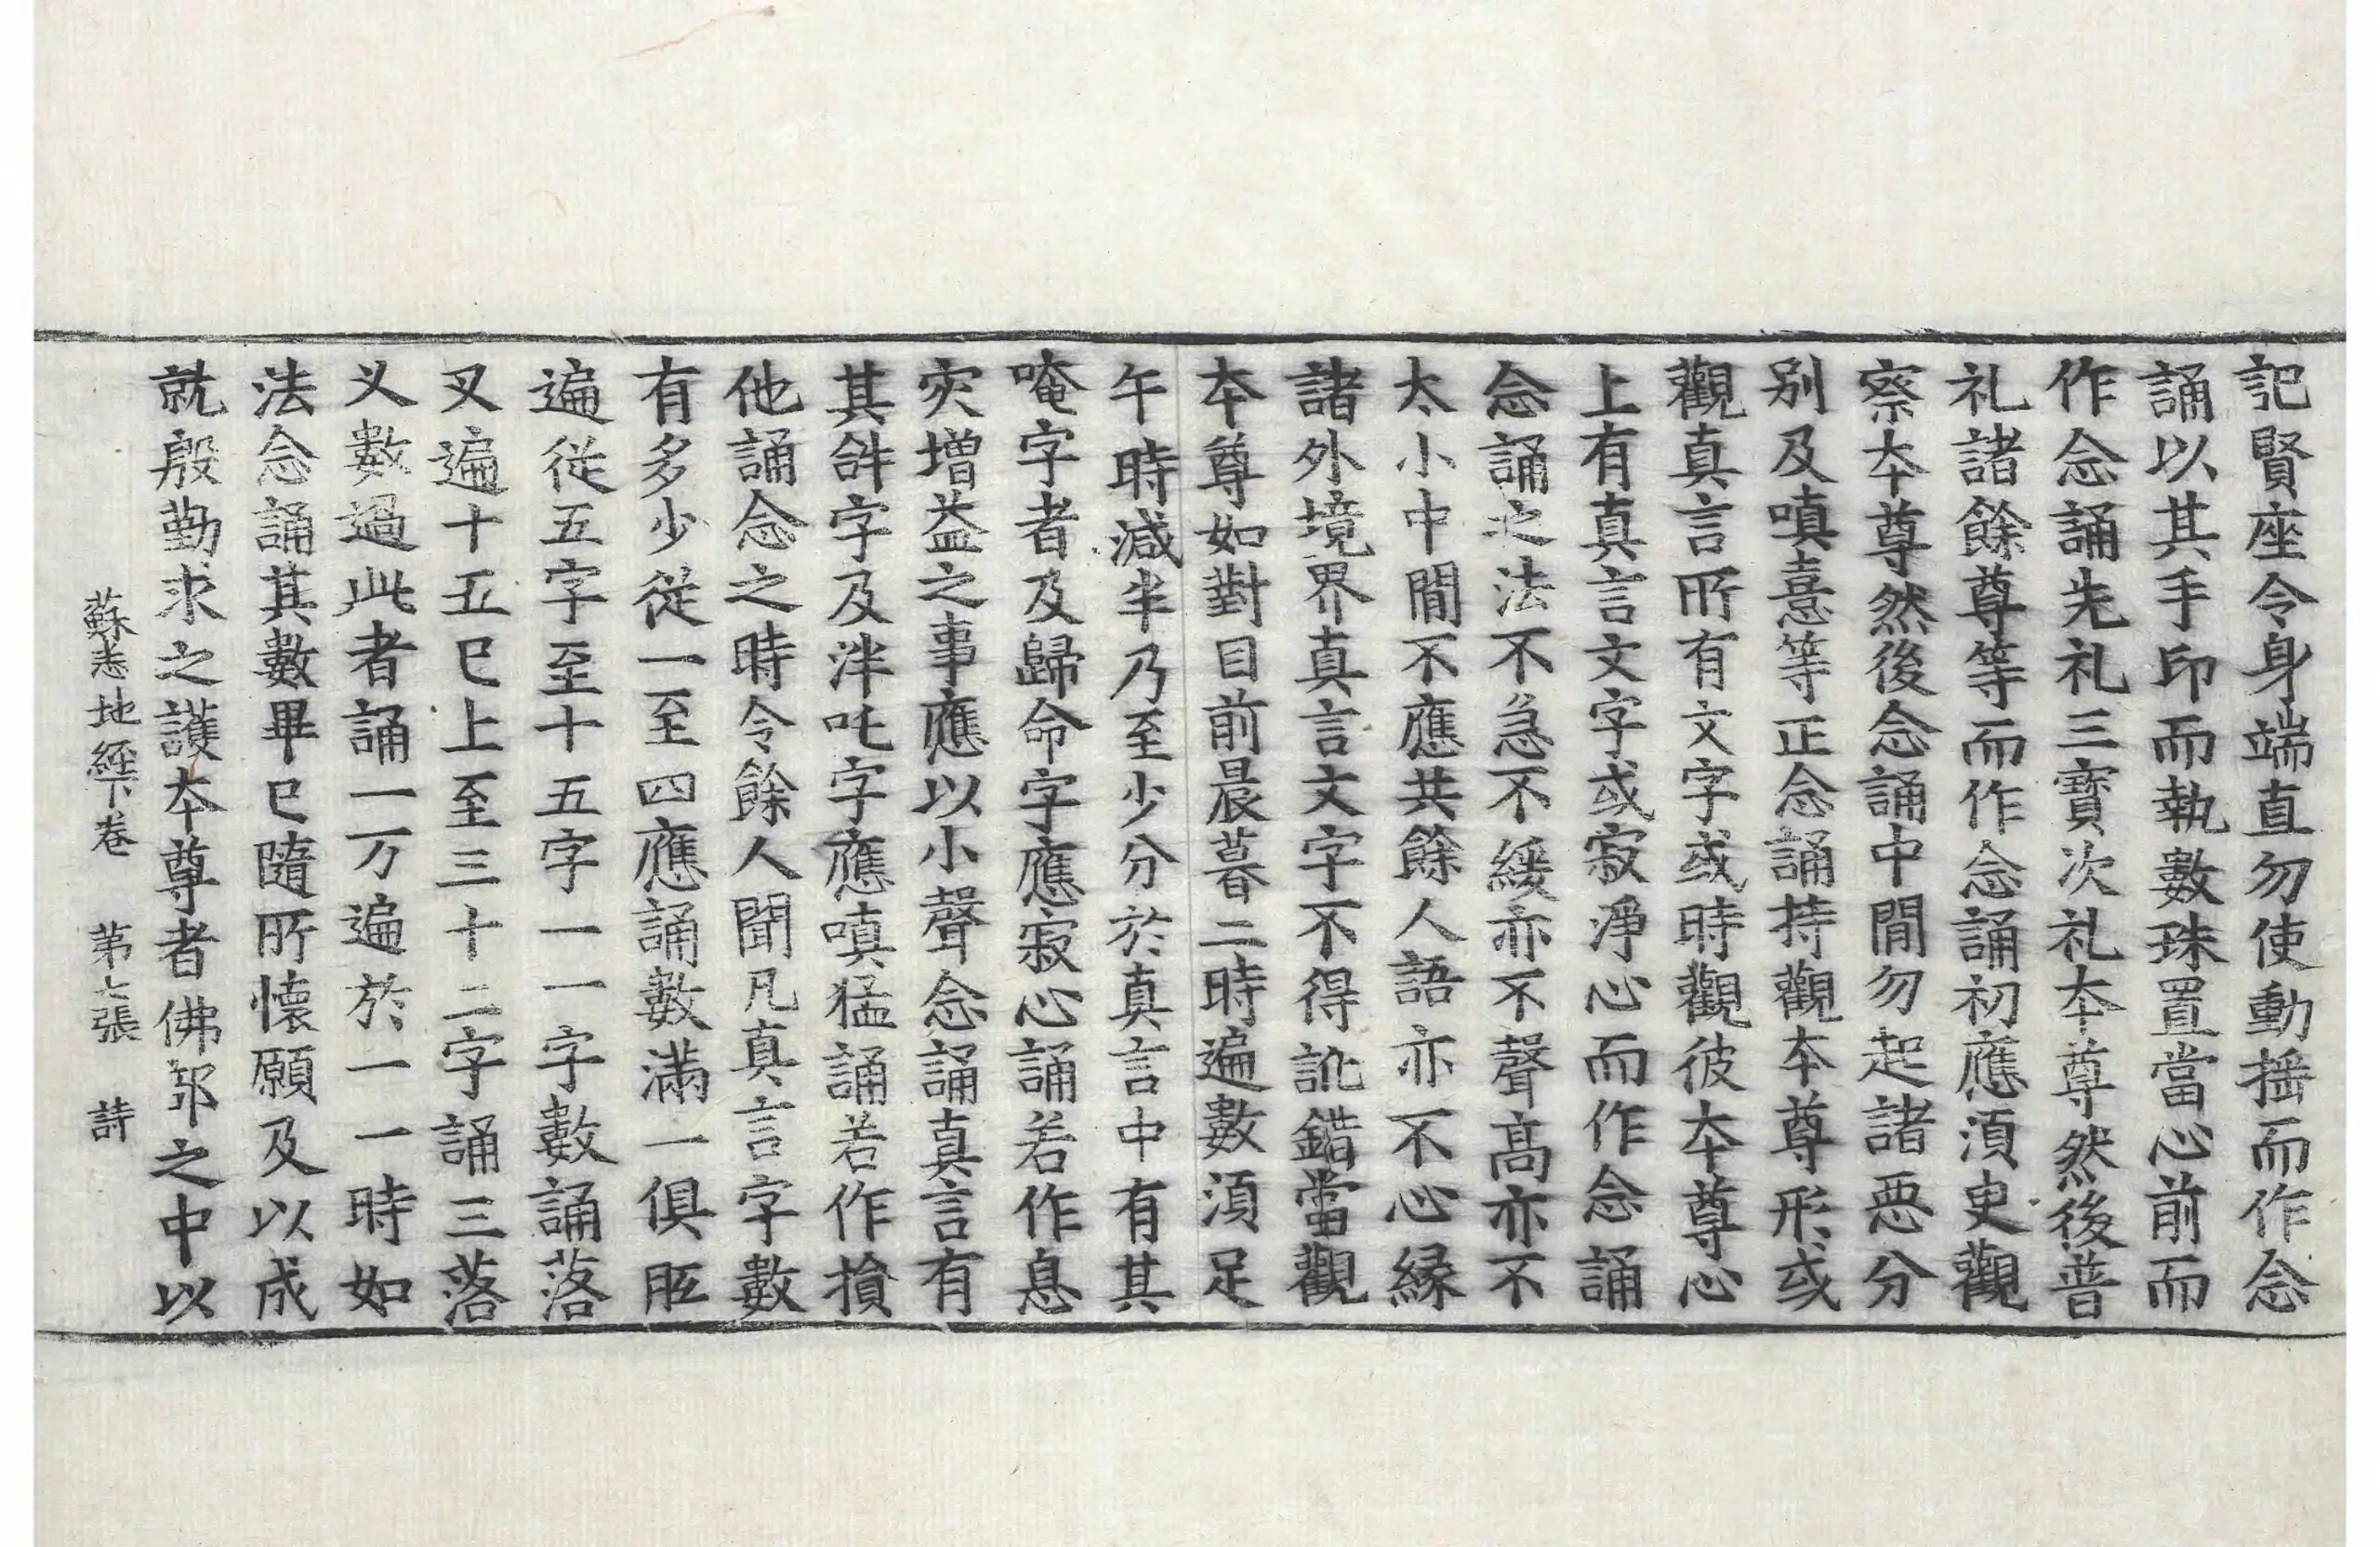 記賢座令身端直勿使動揺而作念
誦以其手印而執數珠置當心前而
作念誦先礼三寳次礼夲尊然後普
礼諸餘尊等而作念誦初應湏史觀
察夲尊然後念誦中閒勿起諸惡分
别及嗔恚等正念誦持觀夲尊形或
觀真言所有文字或時觀彼夲尊心
上有真言文字或寂淨心而作念誦
念誦之法不急不緩亦不聲髙亦不
太小中閒不應共餘人語亦不心縁
諸外境界真言文字不得訛錯當觀
夲尊如對目前晨暮二時遍數湏足
午時減半乃至少分於真言中有其
唵字者及歸命字應寂心誦若作息
灾增益之事應以小聲念誦真言有
其𤙖字及泮吒字應嗔猛誦若作損
他誦念之時令餘人聞凡真言字數
有多少從一至四應誦數滿一俱胝
遍從五字至十五字一一字數誦落
叉遍十五巳上至三十二字誦三落
叉數過此者誦一万遍於一一時如
法念誦其數畢巳隨所懐願及以成
就殷勤求之護夲尊者佛部之中以
蘇悉地經下卷　第七張　詩